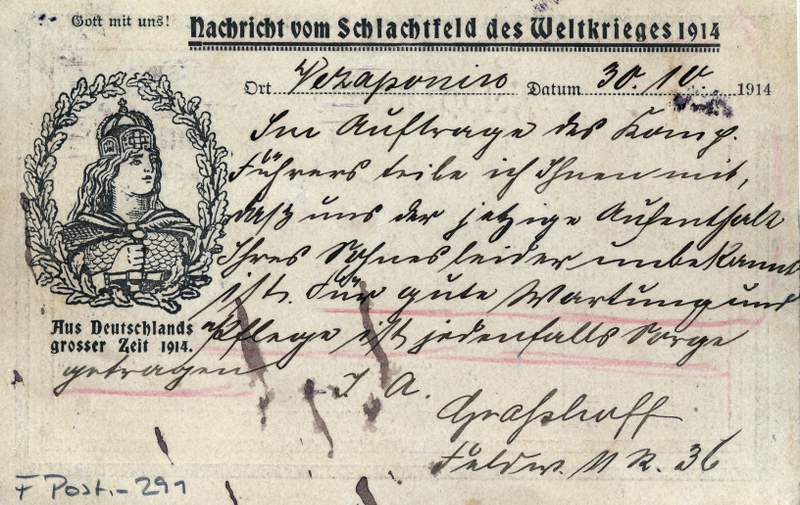 Gott mit uns!
Nachricht vom Schlachtfeld des Weltkrieges 1914
Ort Vezaponin Datum 30. 10. 1914
Im Auftrage des Komp.
Führers teile ich Ihnen mit,
daß uns der jetzige Aufenthalt
Ihres Sohnes leider unbekannt
ist. Für gute Wartung und
Pflege ist jedenfalls Sorge
getragen
I. A.
Graßhoff
Feldw. R. 36
Aus Deutschlands
grosser Zeit 1914.
F Post.- 291